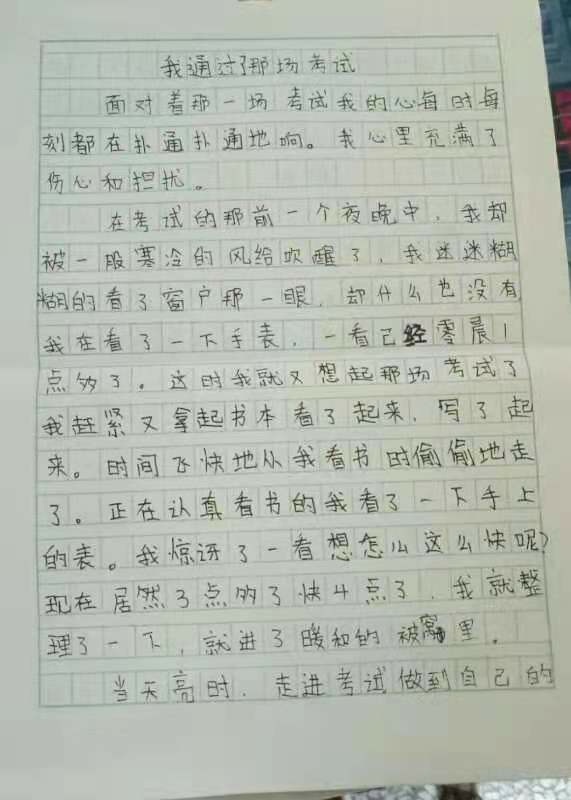 我通过了那场考试
面对着那一场考试我的心每时每
刻都在扑通扑通地响。我心里充满了
伤心和担扰。
在考试的那前一个夜晚中，我却
被一股寒冷的风给吹醒了，我迷迷糊
糊的看了窗户那一眼，却什么也没有
我在看了一下手表，一看已经零晨1
点多了。这时我就又想起那场考试了
我赶紧又拿起书本看了起来，写了起
来。时间飞快地从我看书时偷偷地走
了。正在认真看书的我看了一下手上
的表。我惊讶了一看想怎么这么快呢?
现在居然3点多了快4点了，我就整
理了一下，就进了暖和的被窝里。
当天亮时，走进考试做到自己的